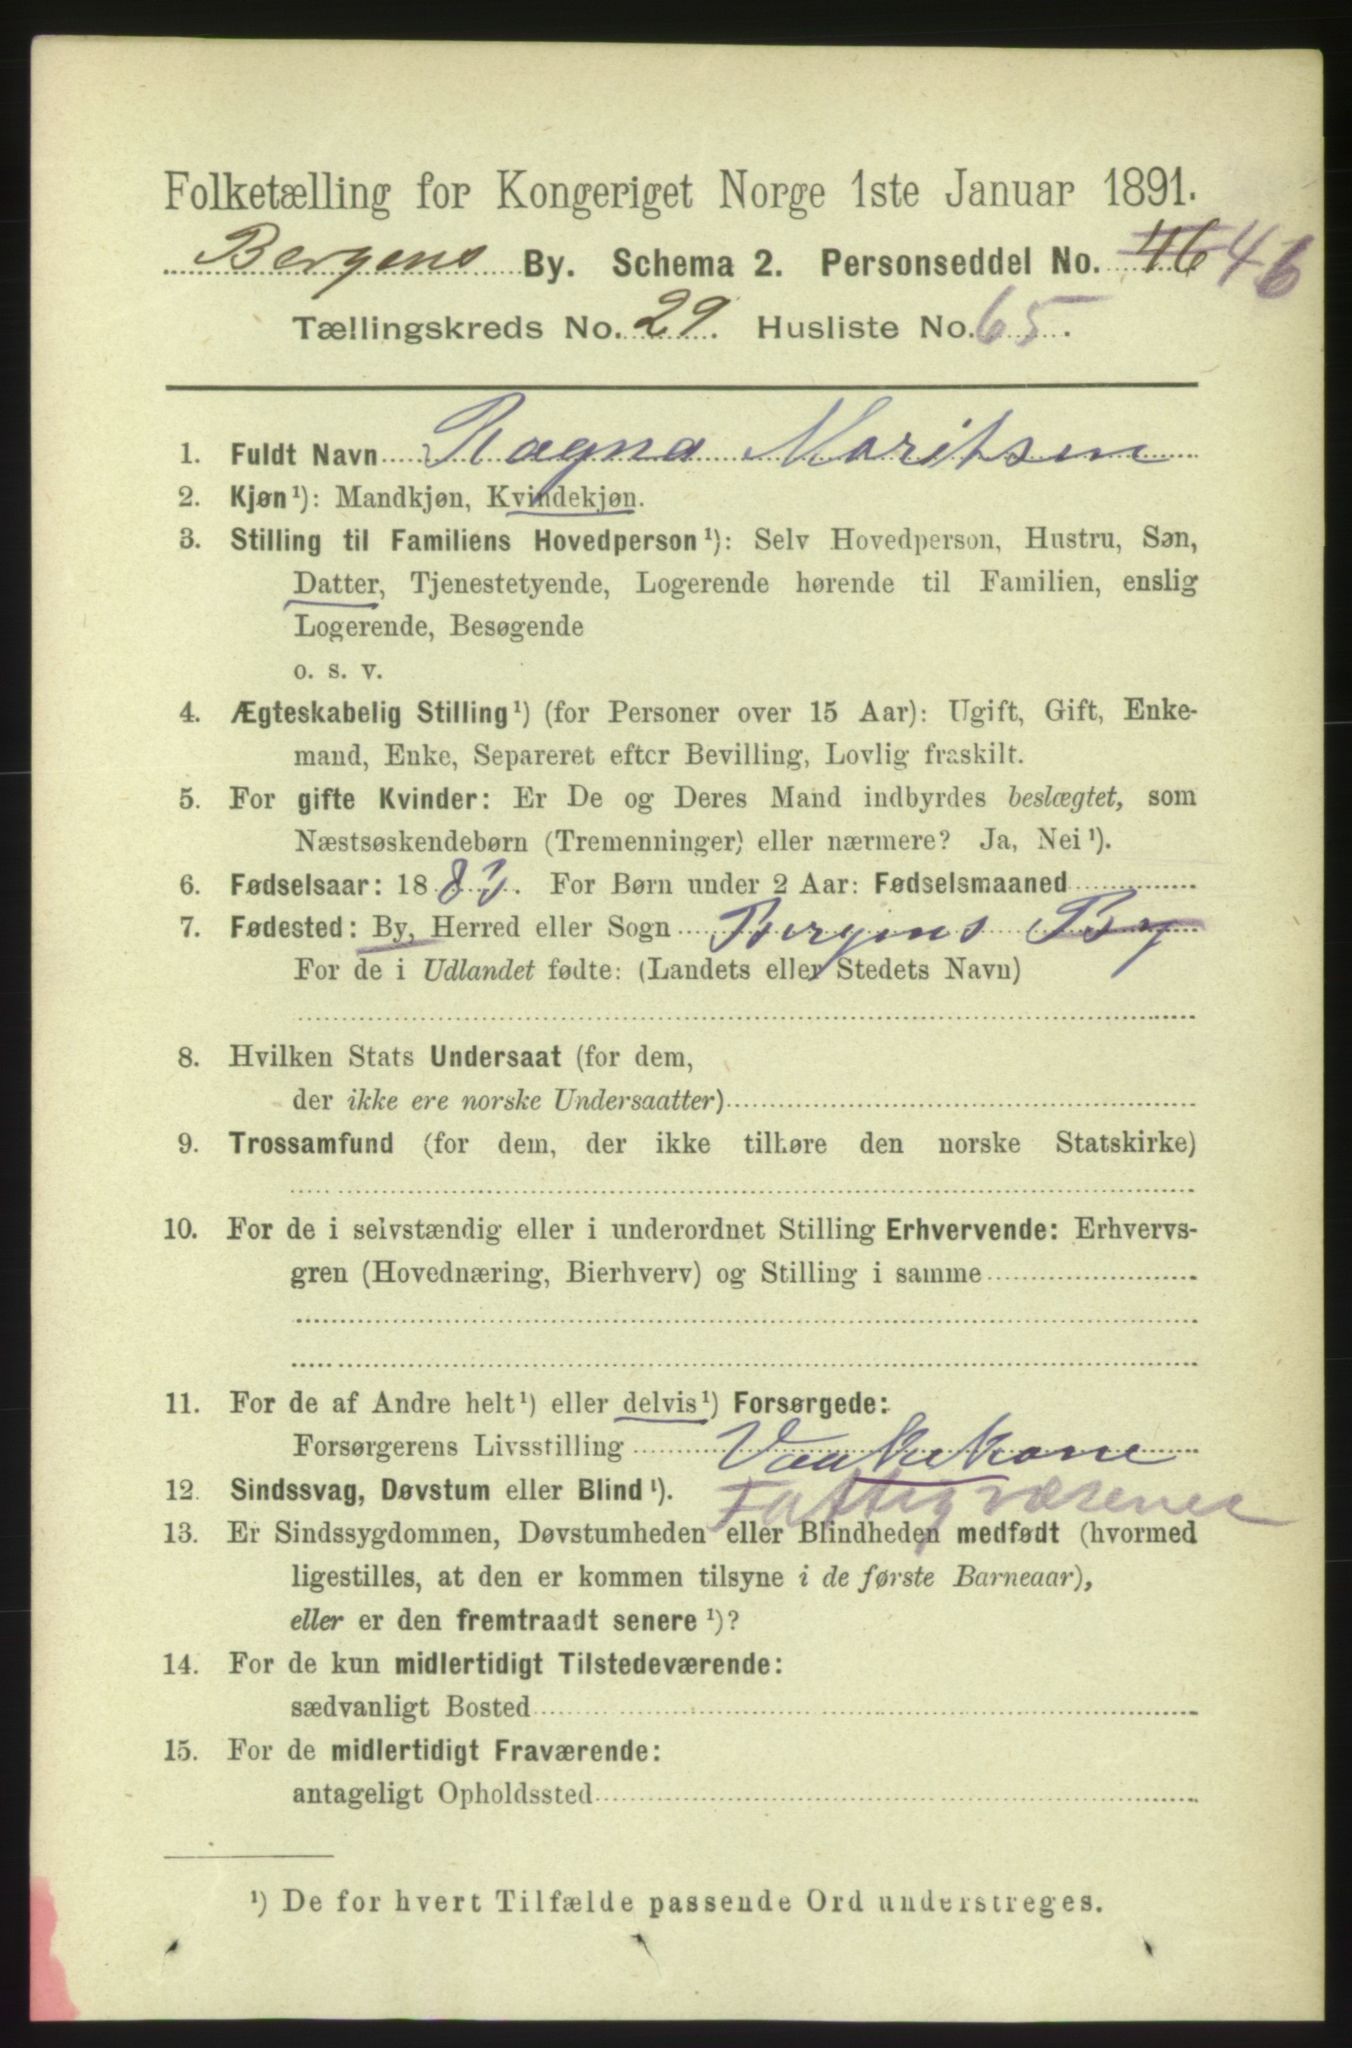 Folketælling for Kongeriget Norge 1ste Januar 1891.
Bergens By. Schema 2. Personseddel No. 46 46
Tællingskreds No. 29. Husliste No. 65.
1. Fuldt Navn Ragna Maritsen
2. Kjøn¹): Mandkjøn, Kvindekjøn.
3. Stilling til Familiens Hovedperson¹): Selv Hovedperson, Hustru, Søn,
Datter, Tjenestetyende, Logerende hørende til Familien, enslig
Logerende, Besøgende
o. s. v.
4. Ægteskabelig Stilling¹) (for Personer over 15 Aar): Ugift, Gift, Enke-
mand, Enke, Separeret efter Bevilling, Lovlig fraskilt.
5. For gifte Kvinder: Er De og Deres Mand indbyrdes beslægtet, som
Næstsøskendebørn (Tremenninger) eller nærmere? Ja, Nei¹).
6. Fødselsaar: 18 . For Børn under 2 Aar: Fødselsmaaned
7. Fødested: By, Herred eller Sogn Bergens By
For de i Udlandet fødte: (Landets eller Stedets Navn)
8. Hvilken Stats Undersaat (for dem,
der ikke ere norske Undersaatter)
9. Trossamfund (for dem, der ikke tilhøre den norske Statskirke)
10. For de i selvstændig eller i underordnet Stilling Erhvervende: Erhvervs-
gren (Hovednæring, Bierhverv) og Stilling i samme
11. For de af Andre helt¹) eller delvis¹) Forsørgede:
Forsørgerens Livsstilling Vaakekone
12. Sindssvag, Døvstum eller Blind¹). Fattigvæsenet
13. Er Sindssygdommen, Døvstumheden eller Blindheden medfødt (hvormed
ligestilles, at den er kommen tilsyne i de første Barneaar),
eller er den fremtraadt senere¹)?
14. For de kun midlertidigt Tilstedeværende:
sædvanligt Bosted
15. For de midlertidigt Fraværende:
antageligt Opholdssted
¹) De for hvert Tilfælde passende Ord understreges.